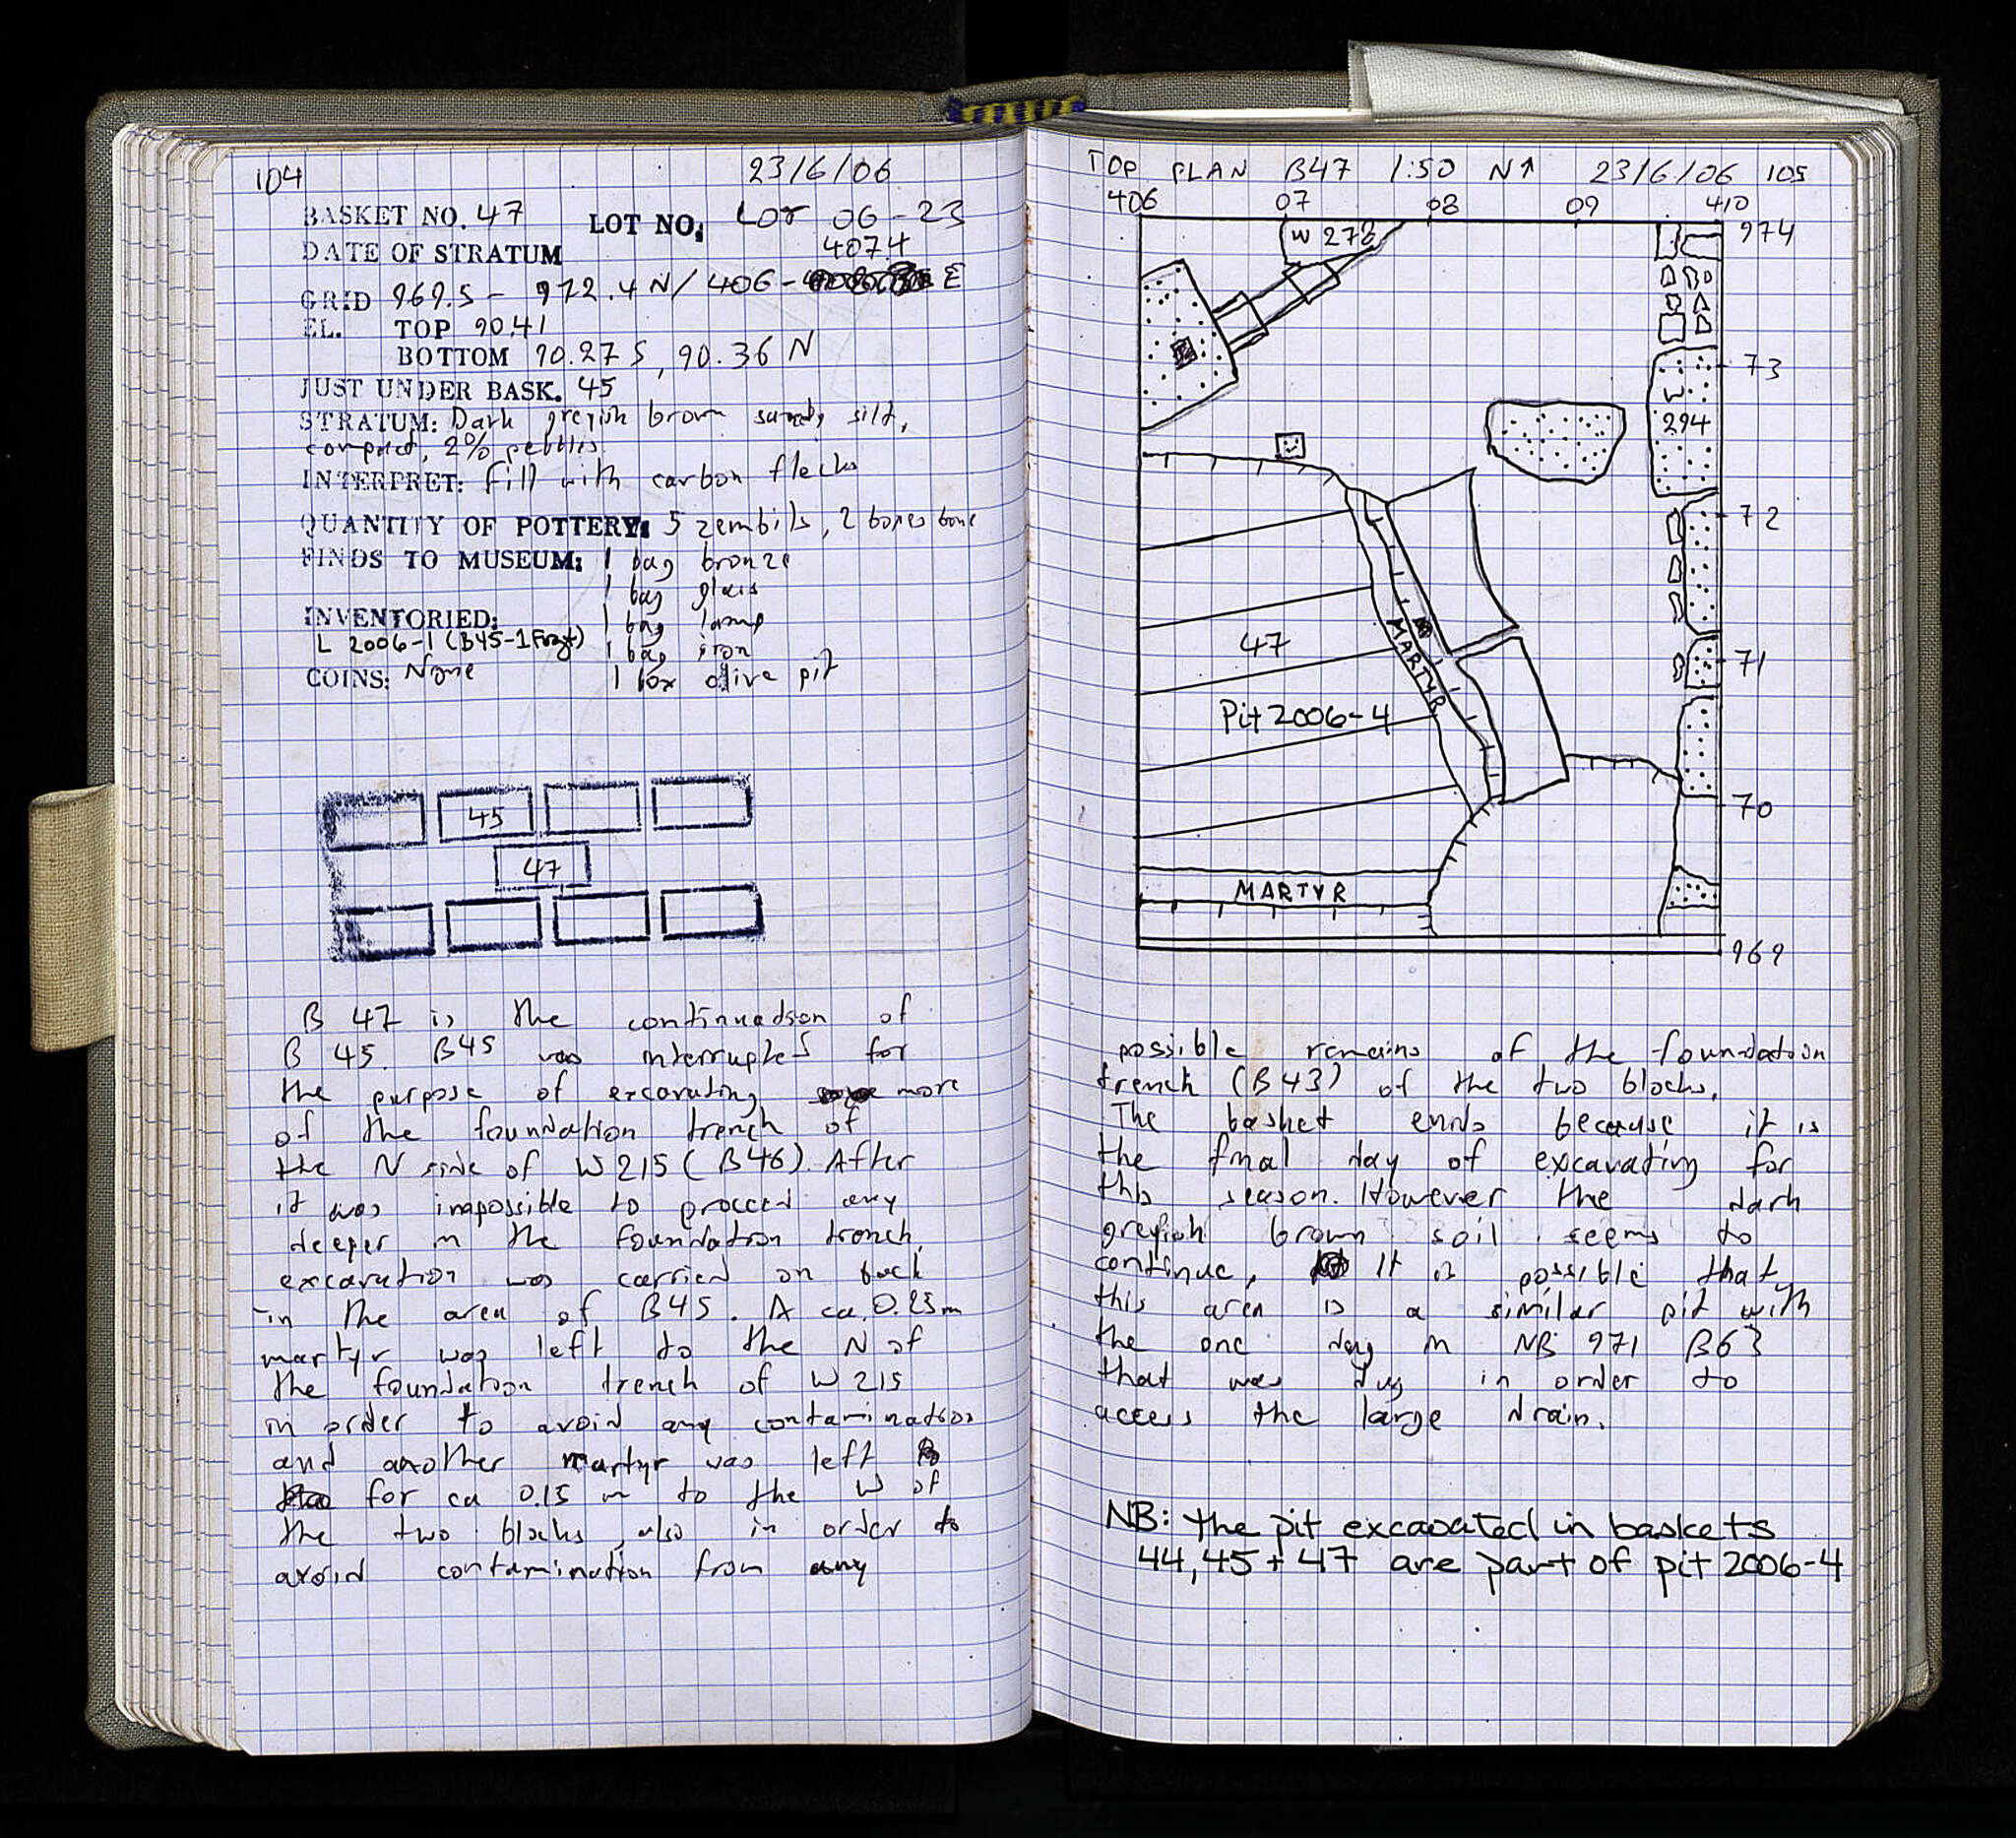 104
23/6/06
BASKET NO. 47 LOT NO: Lot 06-23
DATE OF STRATUM 407.4
GRID 969.5 - 972.4 N / 406 - E
EL. TOP 90.41
BOTTOM 90.27 S, 90.36 N
JUST UNDER BASK. 45
STRATUM: Dark greyish brown sandy silt,
compact, 2% pebbles
INTERPRET: fill with carbon flecks
QUANTITY OF POTTERY: 5 zembils, 2 boxes bone
FINDS TO MUSEUM: 1 bag bronze
1 bag glass
INVENTORIED: 1 bag lamp
L 2006-1 (B45-1 Fragt) 1 bag iron
COINS: None 1 box olive pit
45
47
B 47 is the continuation of
B 45. B45 was interrupted for
the purpose of excavating more
of the foundation trench of
the N side of W215 (B46). After
it was impossible to proceed any
deeper in the foundation trench,
excavation was carried on back
in the area of B45. A ca. 0.25m
martyr was left to the N of
the foundation trench of W215
in order to avoid any contamination
and another martyr was left
for ca 0.15 m to the W of
the two blocks also in order to
avoid contamination from any
TOP PLAN B47 1:50 N↑ 23/6/06 105
406 07 08 09 410
W 272
974
73
W
294
72
71
70
969
MARTYR
47
Pit 2006-4
MARTYR
possible remains of the foundation
trench (B43) of the two blocks.
The basket ends because it is
the final day of excavating for
this season. However the dark
greyish brown soil seems to
continue. It is possible that
this area is a similar pit with
the one dug in NB 971 B63
that was dug in order to
access the large drain.
NB: the pit excavated in baskets
44, 45 + 47 are part of pit 2006-4